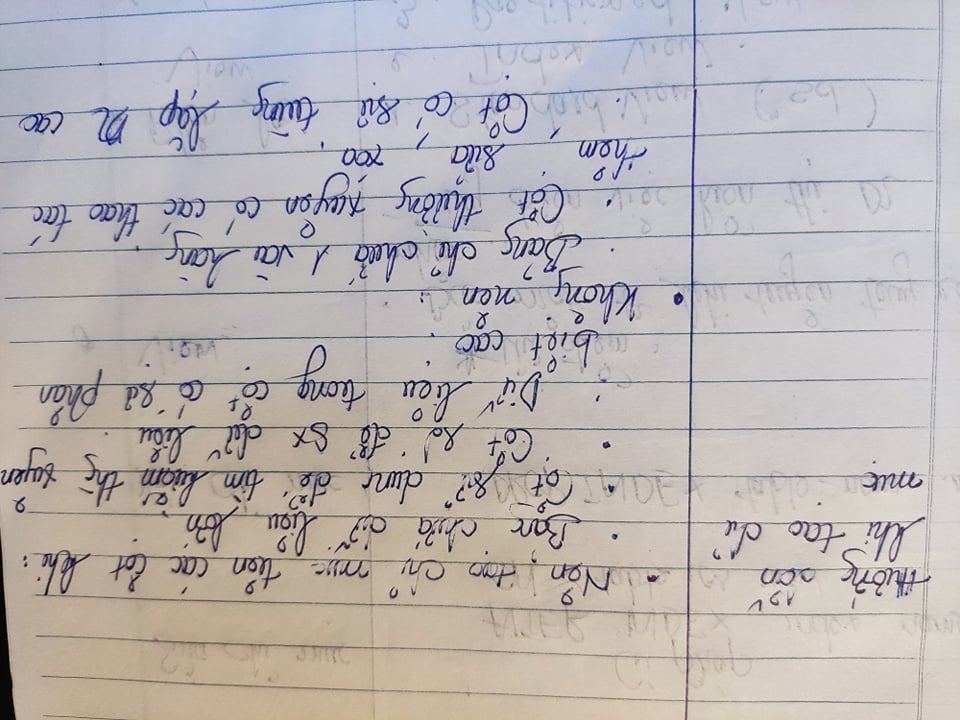 Hướng dẫn
khi tạo chỉ
mục
• Nên tạo chỉ mục trên các cột khi:
• Bảng chứa dữ liệu lớn.
• Cột sử dụng để tìm kiếm thg xuyên
• Cột sd để sx dữ liệu.
• Dữ liệu trong cột có sự phân
biệt cao.
• Không nên:
• Bảng chỉ chứa 1 vài hàng.
• Cột thường xuyên có các thao tác
thêm, sửa, xóa.
• Cột có sự trùng lặp cao